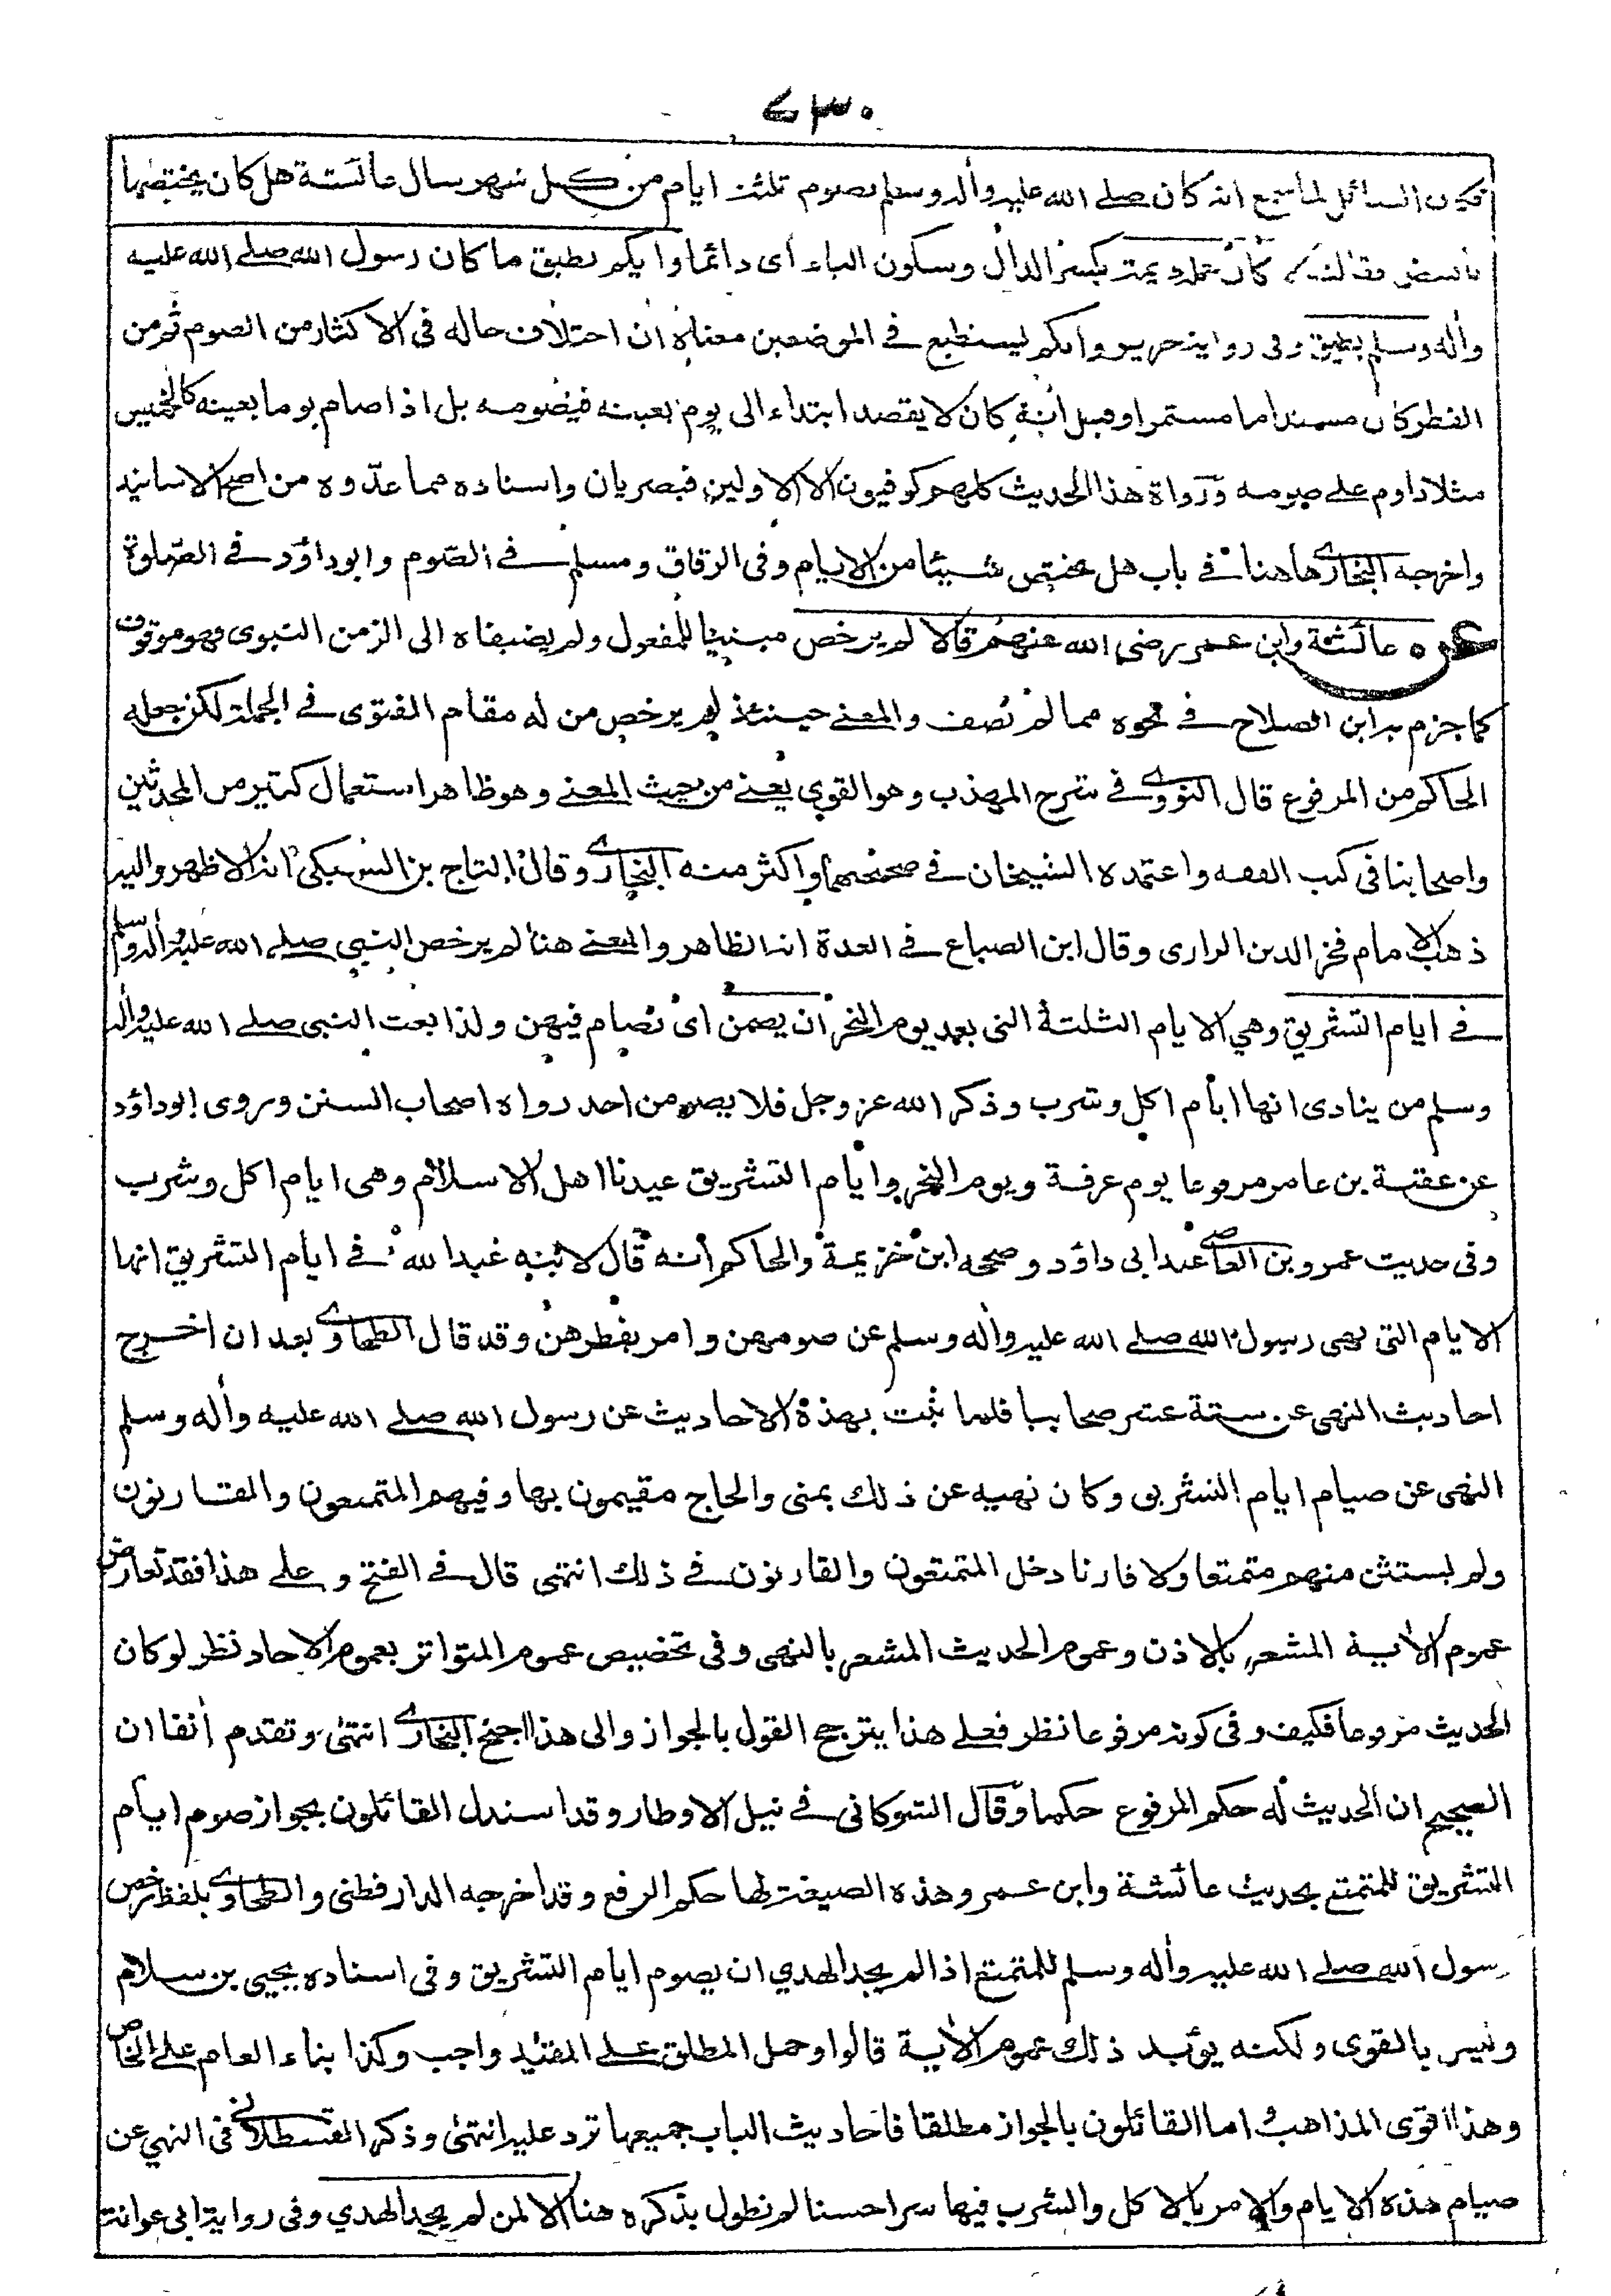 ٧٣٠
فكان السائل لما سمع انه كان صلے الله عليه وأله وسلم يصوم ثلثة ايام من كل شهر سال عائشة هل كان يختصها
بالبيض فقالت لا كان عمله ديمة بكسر الدال وسكون الياء أى دائما وايكم يطيق ما كان رسول الله صلے الله عليه
وأله وسلم يطيق وفى رواية جرير وايكم يستطيع فے الموضعين معناه ان اختلاف حاله فى الاكثار من الصوم ثم من
الفطر كان مستداما مستمرا وقيل انه كان لا يقصد ابتداء الى يوم بعينه فيصومه بل اذا صام يوما بعينه كالخميس
مثلا داوم علے صومه ورواة هذا الحديث كلهم كوفيون الا الاولين فبصريان واسناده مما عدّوه من اصح الاسانيد
واخرجه البخارے هاهنا فے باب هل يختص شيئا من الايام وفى الرقاق ومسلم فے الصّوم وابوداؤد فے الصّلوة
عن عائشة وابن عمر رضى الله عنهم قالا لم يرخص مبنيا للمفعول ولم يضيفاه الى الزمن النبوى فهو موقوف
كما جزم به ابن الصلاح فے نحوه مما لم يُضف والمعنے حينئذ لم يرخص من له مقام الفتوى فے الجملة لكن جعله
الحاكم من المرفوع قال النووے فے شرح المهذب وهو القوى يعنے من حيث المعنے وهو ظاهر استعمال كثير من المحدثين
واصحابنا فى كتب الفقه واعتمده الشيخان فے صحيحيهما واكثر منه البخارے وقال التاج بن السبكى انه الاظهر واليه
ذهب الامام فخر الدين الرازى وقال ابن الصباع فے العدة انه الظاهر والمعنے هنا لم يرخص النبى صلے الله عليه وأله وسلم
فے ايام التشريق وهي الايام الثلثة التى بعد يوم النحر ان يصمن اى يُصام فيهن ولذا بعث النبى صلے الله عليه وأله
وسلم من ينادى انها ايام اكل وشرب وذكر الله عز وجل فلا يصومن احد رواه اصحاب السنن وروى ابوداؤد
عن عقبة بن عامر مرفوعا يوم عرفة ويوم النحر وايام التشريق عيدنا اهل الاسلام وهى ايام اكل وشرب
وفى حديث عمرو بن العاصے عند ابى داؤد وصححه ابن خزيمة والحاكم أنه قال لابنه عبد الله فے ايام التشريق انها
الايام التى نهى رسول الله صلے الله عليه وأله وسلم عن صومهن وامر بفطرهن وقد قال الطحاوے بعد ان اخرج
احاديث النهى عن ستة عشر صحابيا فلما ثبت بهذه الاحاديث عن رسول الله صلے الله عليه وأله وسلم
النهى عن صيام ايام التشريق وكان نهيه عن ذلك بمنى والحاج مقيمون بها وفيهم المتمتعون والقارنون
ولم يستثن منهم متمتعا ولا قارنا دخل المتمتعون والقارنون فے ذلك انتهى قال فے الفتح وعلے هذا فقد تعارض
عموم الأية المشعر بالاذن وعموم الحديث المشعر بالنهى وفى تخصيص عموم المتواتر بعموم الاحاد نظر لو كان
الحديث مرفوعا فكيف وفى كونه مرفوعا نظر فعلے هذا يترجح القول بالجواز والى هذا جنح البخارے انتهى وتقدم أنفا ان
الصحيح ان الحديث له حكم المرفوع حكما وقال الشوكانى فے نيل الاوطار وقد استدل القائلون بجواز صوم ايام
التشريق للمتمتع بحديث عائشة وابن عمر وهذه الصيغة لها حكم الرفع وقد اخرجه الدارقطنى والطحاوے بلفظ رخص
رسول الله صلے الله عليه وأله وسلم للمتمتع اذا لم يجد الهدي ان يصوم ايام التشريق وفى اسناده يحيى بن سلام
وليس بالقوى ولكنه يؤيد ذلك عموم الأية قالوا وحمل المطلق علے المقيد واجب وكذا بناء العام علے الخاص
وهذا اقوى المذاهب واما القائلون بالجواز مطلقا فاحاديث الباب جميعها ترد عليه انتهى وذكر القسطلانے فى النهي عن
صيام هذه الايام والامر بالاكل والشرب فيها سرا حسنا لم نطول بذكره هنا الا لمن لم يجد الهدي وفى رواية ابى عوانة